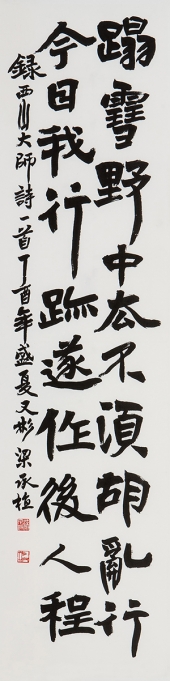 蹋雪野中去不須胡亂行
今日我行跡遂作後人程
録西山大師詩一首丁酉年盛夏又彬梁承